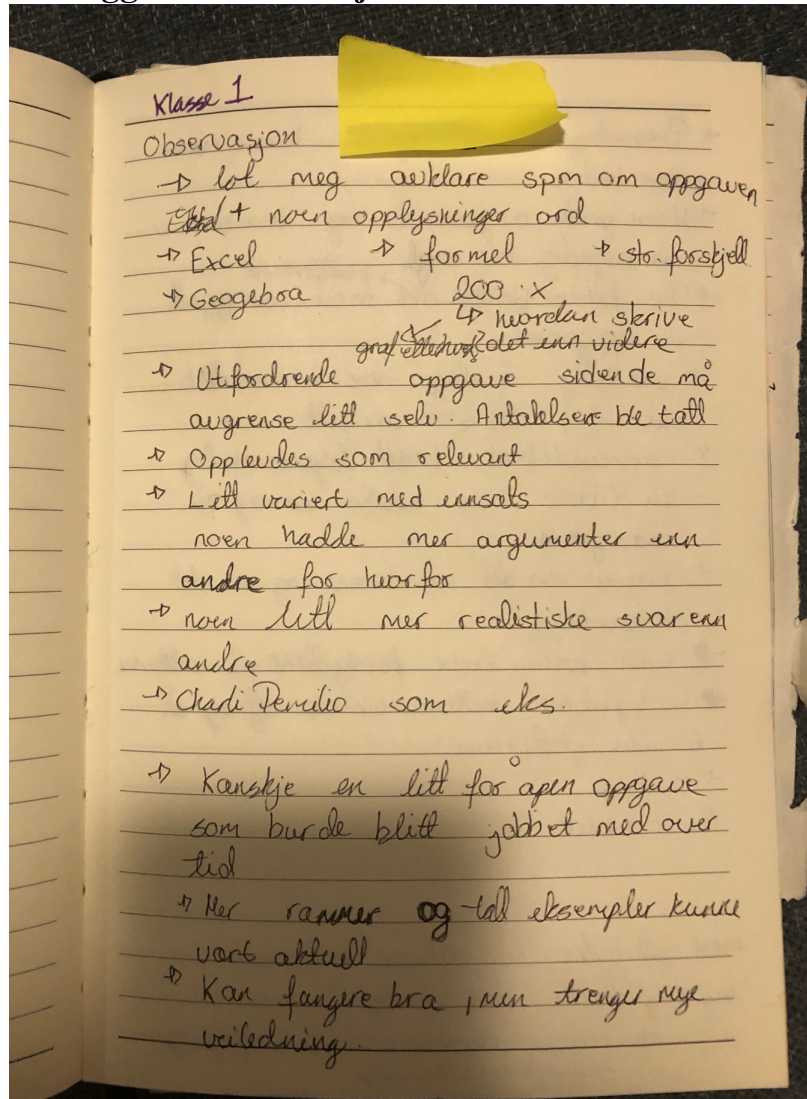 Klasse 1
Observasjon
→ lot meg avklare spm om oppgaven
+ noen opplysninger ord
→ Excel → formel → str. forskjell
→ Geogebra 200 · x
↳ hvordan skrive
graf det inn videre
→ Utfordrende oppgave siden de må
avgrense litt selv. Antakelsene ble tatt
→ Opplevdes som relevant
→ Litt variert med innsats
noen hadde mer argumenter enn
andre for hvorfor
→ noen litt mer realistiske svar enn
andre
→ Charli Demilio som eks.
→ Kanskje en litt for åpen oppgave
som burde blitt jobbet med over
tid
→ Mer rammer og tall eksempler kunne
vært aktuell
→ Kan fungere bra, men trenger mye
veiledning.